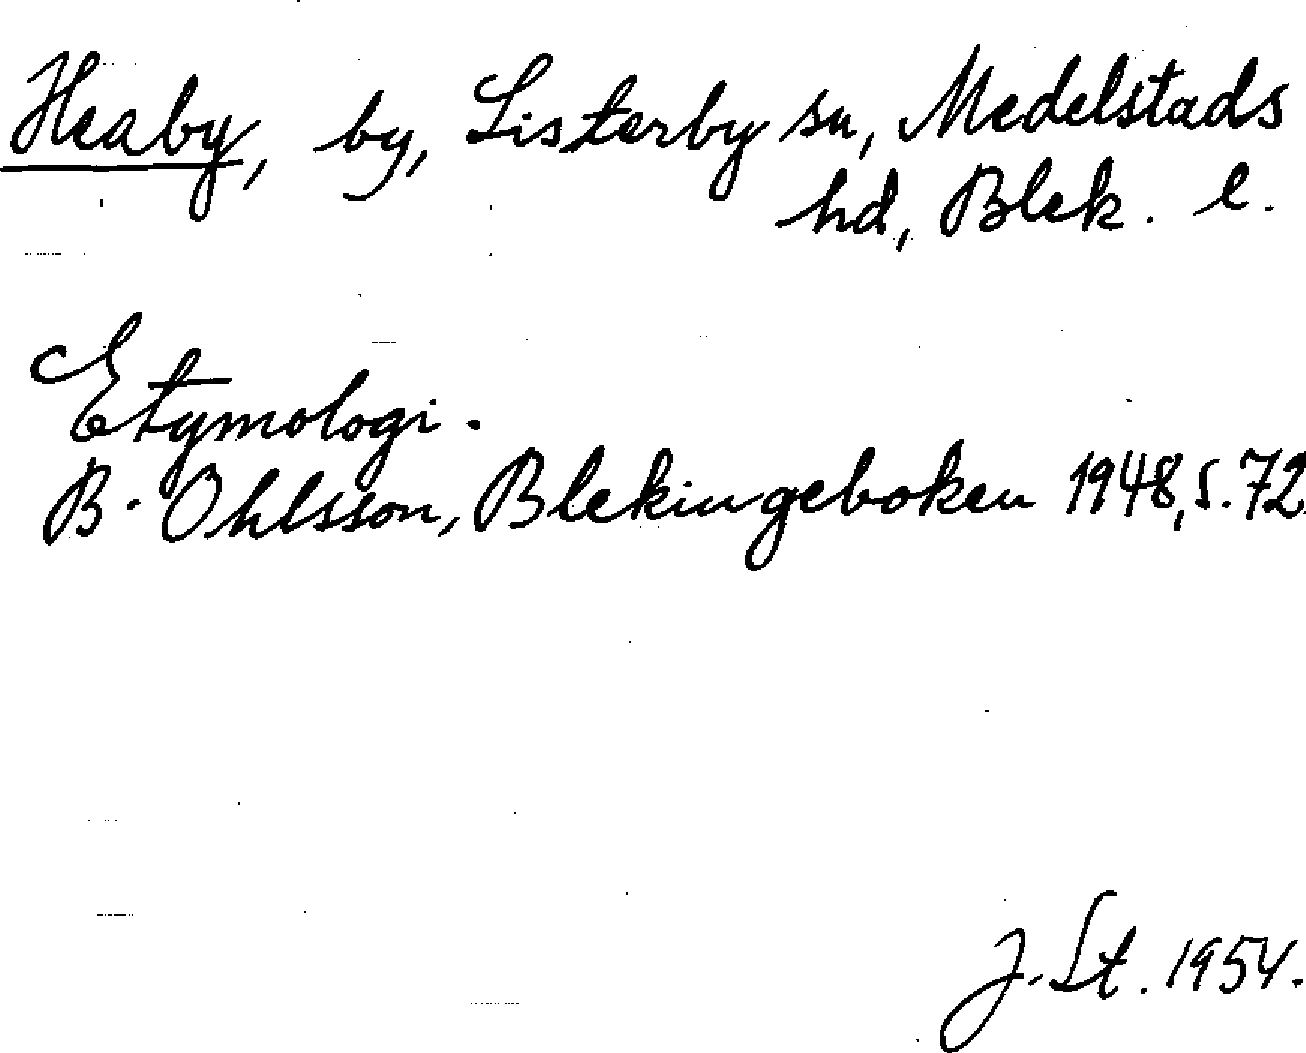 Heaby, by, Listerby sn, Medelstads
hd, Blek. l.
Etymologi.
B. Ohlsson, Blekingeboken 1948, s. 72.
J. St. 1954.